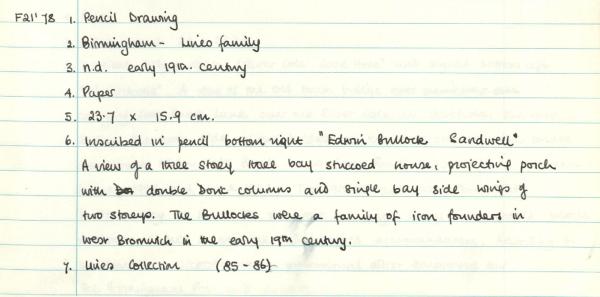 F21'78 1. Pencil Drawing
2. Birmingham - Lines family
3. n.d. early 19th. century
4. Paper
5. 23.7 x 15.9 cm.
6. Inscribed in pencil bottom right "Edwin Bullock Sandwell"
A view of a three storey three bay stuccoed house, projecting porch
with double Doric columns and single bay side wings of
two storeys. The Bullocks were a family of iron founders in
West Bromwich in the early 19th century.
7. Lines Collection (85-86)